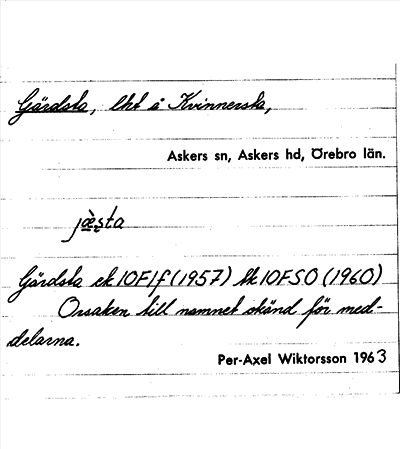 Gärdsta, lht å Kvinnersta,
Askers sn, Askers hd, Örebro län.
jæ̀ṣta
Gärdsta ek 10F1f (1957) tk 10FSO (1960)
Orsaken till namnet okänd för med-
delarna.
Per-Axel Wiktorsson 1963